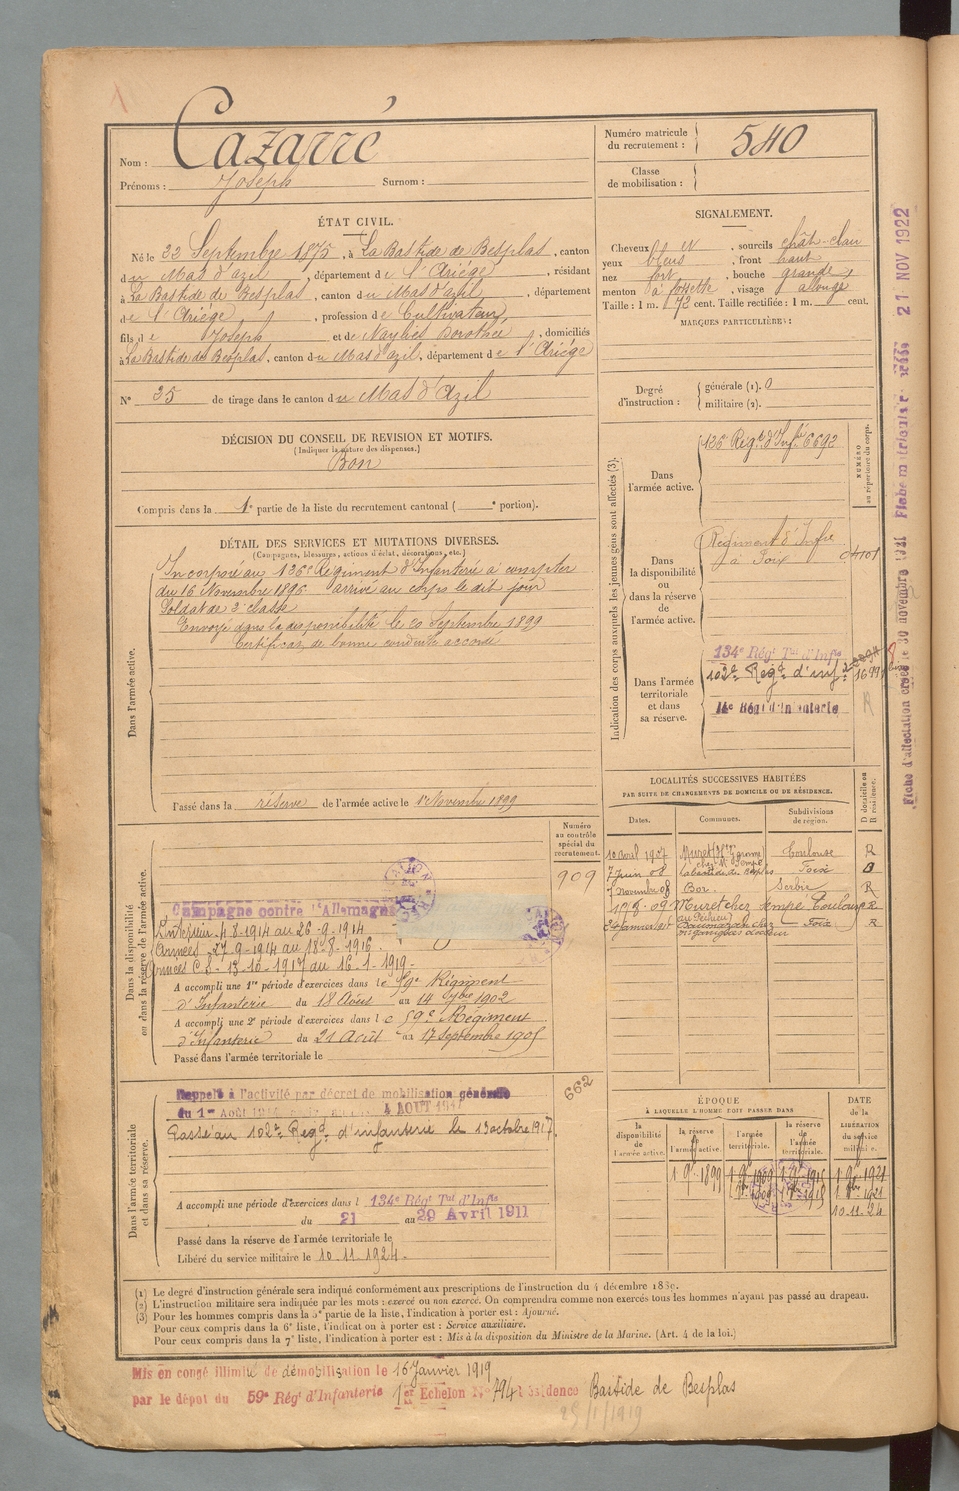 Nom : Cazarré
Prénoms : Joseph Surnom :
Numéro matricule du recrutement : 540
Classe de mobilisation :
ÉTAT CIVIL.
Né le 22 Septembre 1875, à La Bastide de Besplas, canton
du Mas d'azil, département de l'Ariège, résidant
à La Bastide de Besplas, canton du Mas d'azil, département
de l'Ariège, profession de Cultivateur,
fils de Joseph et de Naylies Dorothée, domiciliés
à La Bastide de Besplas, canton du Mas d'azil, département de l'Ariège
N° 35 de tirage dans le canton du Mas d'Azil
SIGNALEMENT.
Cheveux , sourcils chât-clair
yeux bleus, front haut
nez fort, bouche grande,
menton à fossette, visage allongé
Taille : 1 m. 72 cent. Taille rectifiée : 1 m. cent.
MARQUES PARTICULIÈRES :
Degré d'instruction : générale (1). 0
militaire (2).
DÉCISION DU CONSEIL DE REVISION ET MOTIFS.
(Indiquer la nature des dispenses.)
Bon
Compris dans la 1e partie de la liste du recrutement cantonal ( e portion).
DÉTAIL DES SERVICES ET MUTATIONS DIVERSES.
(Campagnes, blessures, actions d'éclat, décorations, etc.)
Dans l'armée active.
Incorporé au 136e Régiment d'Infanterie à compter
du 16 Novembre 1896 arrivé au corps le dit jour
Soldat de 2e classe
Envoyé dans la disponibilité le 20 Septembre 1899
Certificat de bonne conduite accordé
Passé dans la réserve de l'armée active le 1er Novembre 1899
Indication des corps auxquels les jeunes gens sont affectés (3).
NUMÉRO au répertoire du corps.
Dans l'armée active.
136e Régt d'Infie 6692
Dans la disponibilité ou dans la réserve de l'armée active.
Régiment d'Infie
à Foix 04101
Dans l'armée territoriale et dans sa réserve.
134e Régt Tal d'Infie
102e Regt d'inf 1699
14e Régt d'Infanterie
R
Fiche d'affectation créée le 30 novembre 1921 Fiche matriculaire 21 NOV 1922
LOCALITÉS SUCCESSIVES HABITÉES
PAR SUITE DE CHANGEMENTS DE DOMICILE OU DE RÉSIDENCE.
Dates. Communes. Subdivisions de région. D domicile ou R résidence.
10 Avril 1907 Muret (Hte Garonne) chez Mr Sempé Toulouse R
7 Juin 08 Labastide de Besplas Foix D
7 novembre 08 Bor. Serbie R
10/8-09 Muret chez Sempé Toulouse R
Foix R
Numéro au contrôle spécial du recrutement.
909
Dans la disponibilité ou dans la réserve de l'armée active.
Campagne contre l'Allemagne
Intérieur 4-8-1914 au 26-9-1914
Armées 27-9-1914 au 18-8-1916.
Armées C 2- 13-10-1917 au 16-1-1919.
A accompli une 1re période d'exercices dans le 59e Régiment
d'Infanterie du 18 Août au 14 7bre 1902
A accompli une 2e période d'exercices dans le 59e Régiment
d'Infanterie du 21 Août au 17 Septembre 1905
Passé dans l'armée territoriale le
662
Dans l'armée territoriale et dans sa réserve.
Rappelé à l'activité par décret de mobilisation générale
du 1er Août 4 AOUT 1914
Passé au 102e Regt d'infanterie le 13 octobre 1917.
A accompli une période d'exercices dans l 134e Régt Tal d'Infie
du 21 au 29 Avril 1911
Passé dans la réserve de l'armée territoriale le
Libéré du service militaire le 10.11.1924.
ÉPOQUE
À LAQUELLE L'HOMME DOIT PASSER DANS
DATE de la LIBÉRATION du service militaire.
la disponibilité de l'armée active. la réserve de l'armée active. l'armée territoriale. la réserve de l'armée territoriale.
1 9bre 1899 1 9bre 1909 1 9bre 1915 1 9bre 1921
1 8bre 1909 1 8bre 1915 1 8bre 1921
10.11.24
(1) Le degré d'instruction générale sera indiqué conformément aux prescriptions de l'instruction du 4 décembre 1889.
(2) L'instruction militaire sera indiquée par les mots : exercé ou non exercé. On comprendra comme non exercés tous les hommes n'ayant pas passé au drapeau.
(3) Pour les hommes compris dans la 5e partie de la liste, l'indication à porter est : Ajourné.
Pour ceux compris dans la 6e liste, l'indication à porter est : Service auxiliaire.
Pour ceux compris dans la 7e liste, l'indication à porter est : Mis à la disposition du Ministre de la Marine. (Art. 4 de la loi.)
Mis en congé illimité de démobilisation le 16 Janvier 1919
par le dépôt du 59e Régt d'Infanterie 1er Echelon N° 794 Résidence Bastide de Besplas
25/1/1919